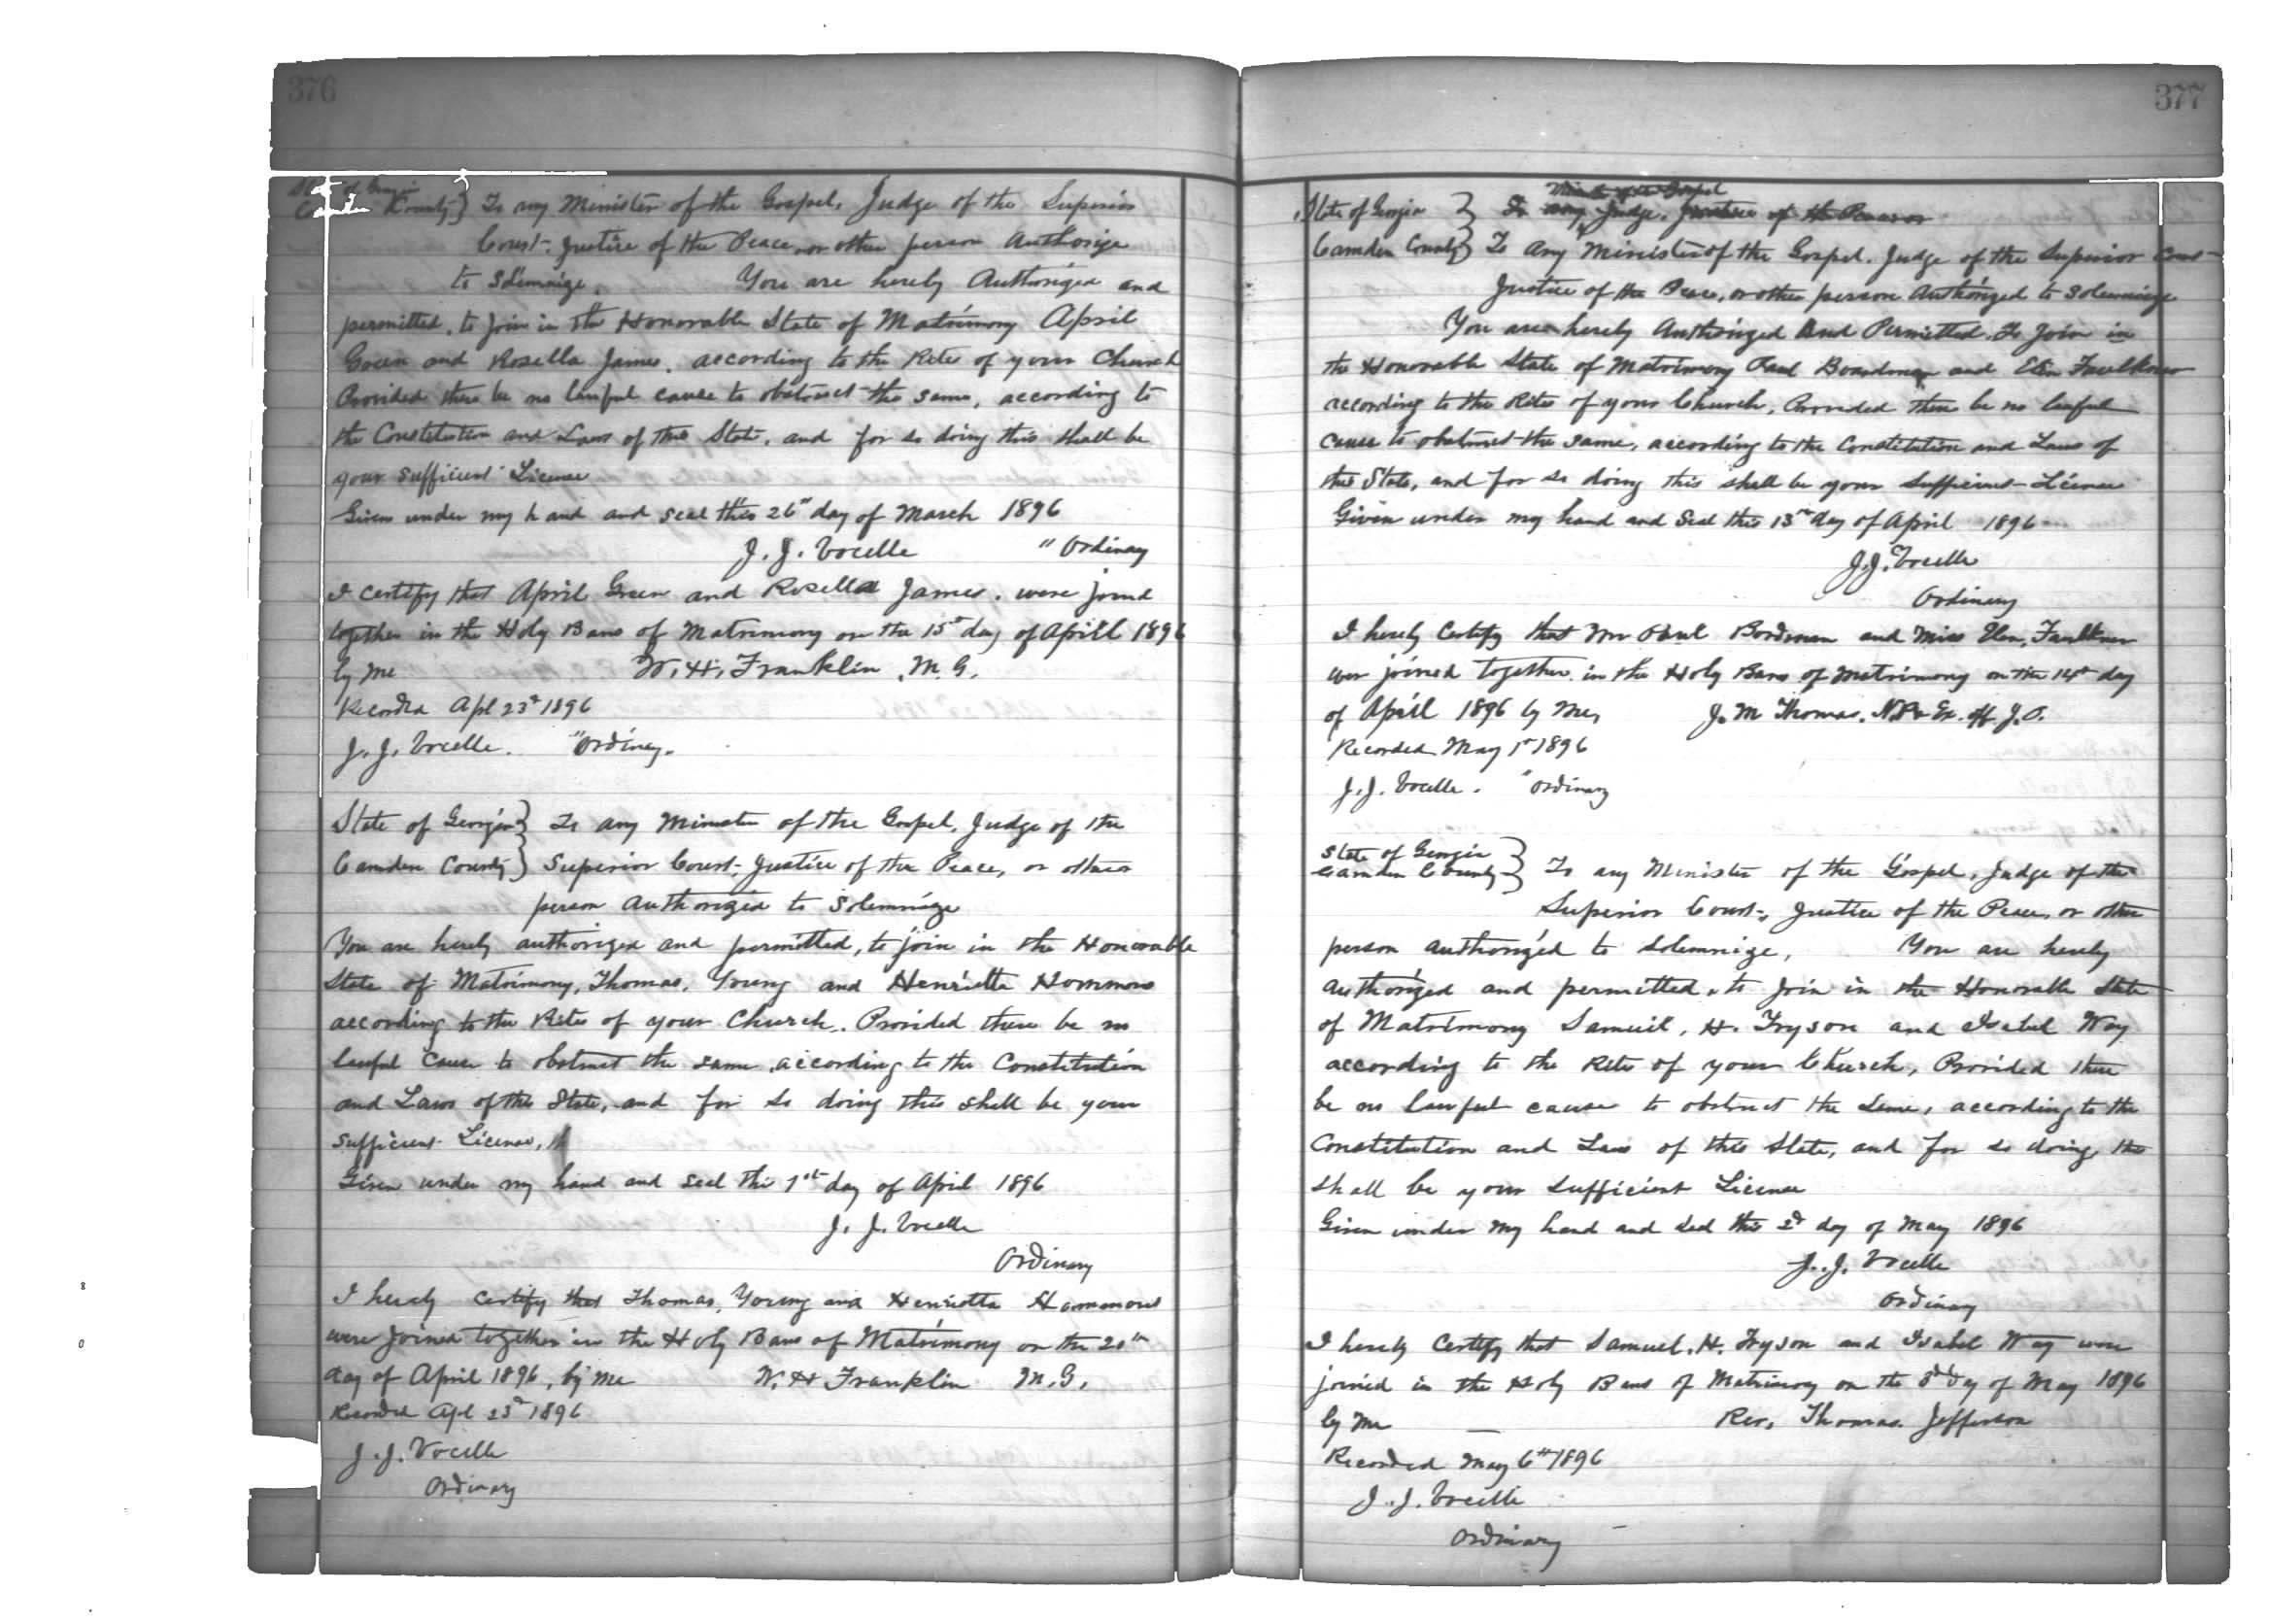 376
State of Georgia
Camden County } To any Minister of the Gospel, Judge of the Superior
Court, Justice of the Peace, or other person Authorize
to Solemnize. You are hereby Authorized and
permitted, to join in the Honorable State of Matrimony April
Green and Rosella James, according to the Rites of your Church
Provided there be no lawful cause to obstruct the same, according to
the Constitution and Laws of this State, and for so doing this shall be
your sufficient License
Given under my hand and seal this 26th day of March 1896
J. J. Vocelle " Ordinary
I certify that April Green and Rosella James, were joined
together in the Holy Bans of Matrimony on the 15th day of Aprill 1896
by me W. H. Franklin, M. G.
Recorded Apl 23d 1896
J. J. Vocelle. "Ordinary.
State of Georgia } To any Minister of the Gospel, Judge of the
Camden County } Superior Court, Justice of the Peace, or other
person authorized to Solemnize
You are hereby authorized and permitted, to join in the Honorable
State of Matrimony, Thomas, Young and Henrietta Hammons
according to the Rites of your Church. Provided there be no
lawful cause to obstruct the same, according to the Constitution
and Laws of this State, and for so doing this shall be your
sufficient License,
Given under my hand and seal this 1st day of April 1896
J. J. Vocelle
Ordinary
I hereby certify that Thomas, Young and Henrietta Hammons
were joined together in the Holy Bans of Matrimony on the 20th
day of April 1896, by me W. H Franklin M. G.
Recorded Apl 23d 1896
J. J. Vocelle
Ordinary
377
State of Georgia } To any Judge, Justice of the Peace or
Camden County } To Any Minister of the Gospel, Judge of the Superior Court
Justice of the Peace, or other person Authorized to Solemnize
You are hereby Authorized And Permitted, To Join in
the Honorable State of Matrimony Paul Boardman and Elen Faulkner
according to the Rites of your Church, Provided there be no lawful
cause to obstruct the same, according to the Constitution and Laws of
this State, and for so doing this shall be your Sufficient License
Given under my hand and Seal this 13th day of April 1896
J. J. Vocelle
Ordinary
I hereby Certify that Mr Paul Bordman and Miss Elen, Faulkner
wer joined together in the Holy Bans of Matrimony on the 14th day
of April 1896 by me, J. M Thomas, N.P. & Ex. off J. P.
Recorded May 1st 1896
J. J. Vocelle. "Ordinary
State of Georgia
Camden County } To any Minister of the Gospel, Judge of the
Superior Court, Justice of the Peace, or other
person authorized to Solemnize, You are hereby
authorized and permitted, to join in the Honorable State
of Matrimony Samuel, H. Tryson and Isabel Way
according to the Rites of your Church, Provided there
be no lawful cause to obstruct the same, according to the
Constitution and Laws of this State, and for so doing, this
shall be your sufficient License
Given under my hand and seal this 2d day of May 1896
J. J. Vocelle
Ordinary
I hereby Certify that Samuel, H. Tryson and Isabel Way were
joined in the Holy Bans of Matrimony on the 3d day of May 1896
by me Rev. Thomas. Jefferson
Recorded May 6th 1896
J. J. Vocelle
Ordinary